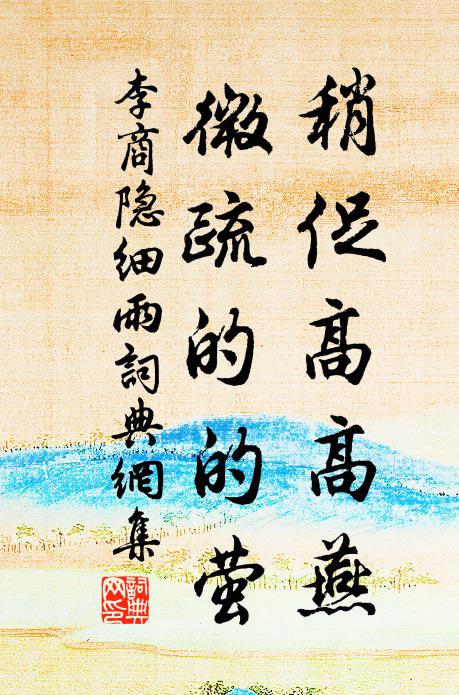 稍促高高燕
微疏的的萤
李商隐细雨詞典網集
詞典